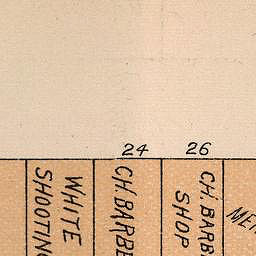 24 26
WHITE
SHOOTIN
CH. BARBE
CH. BARB
SHOP
ME